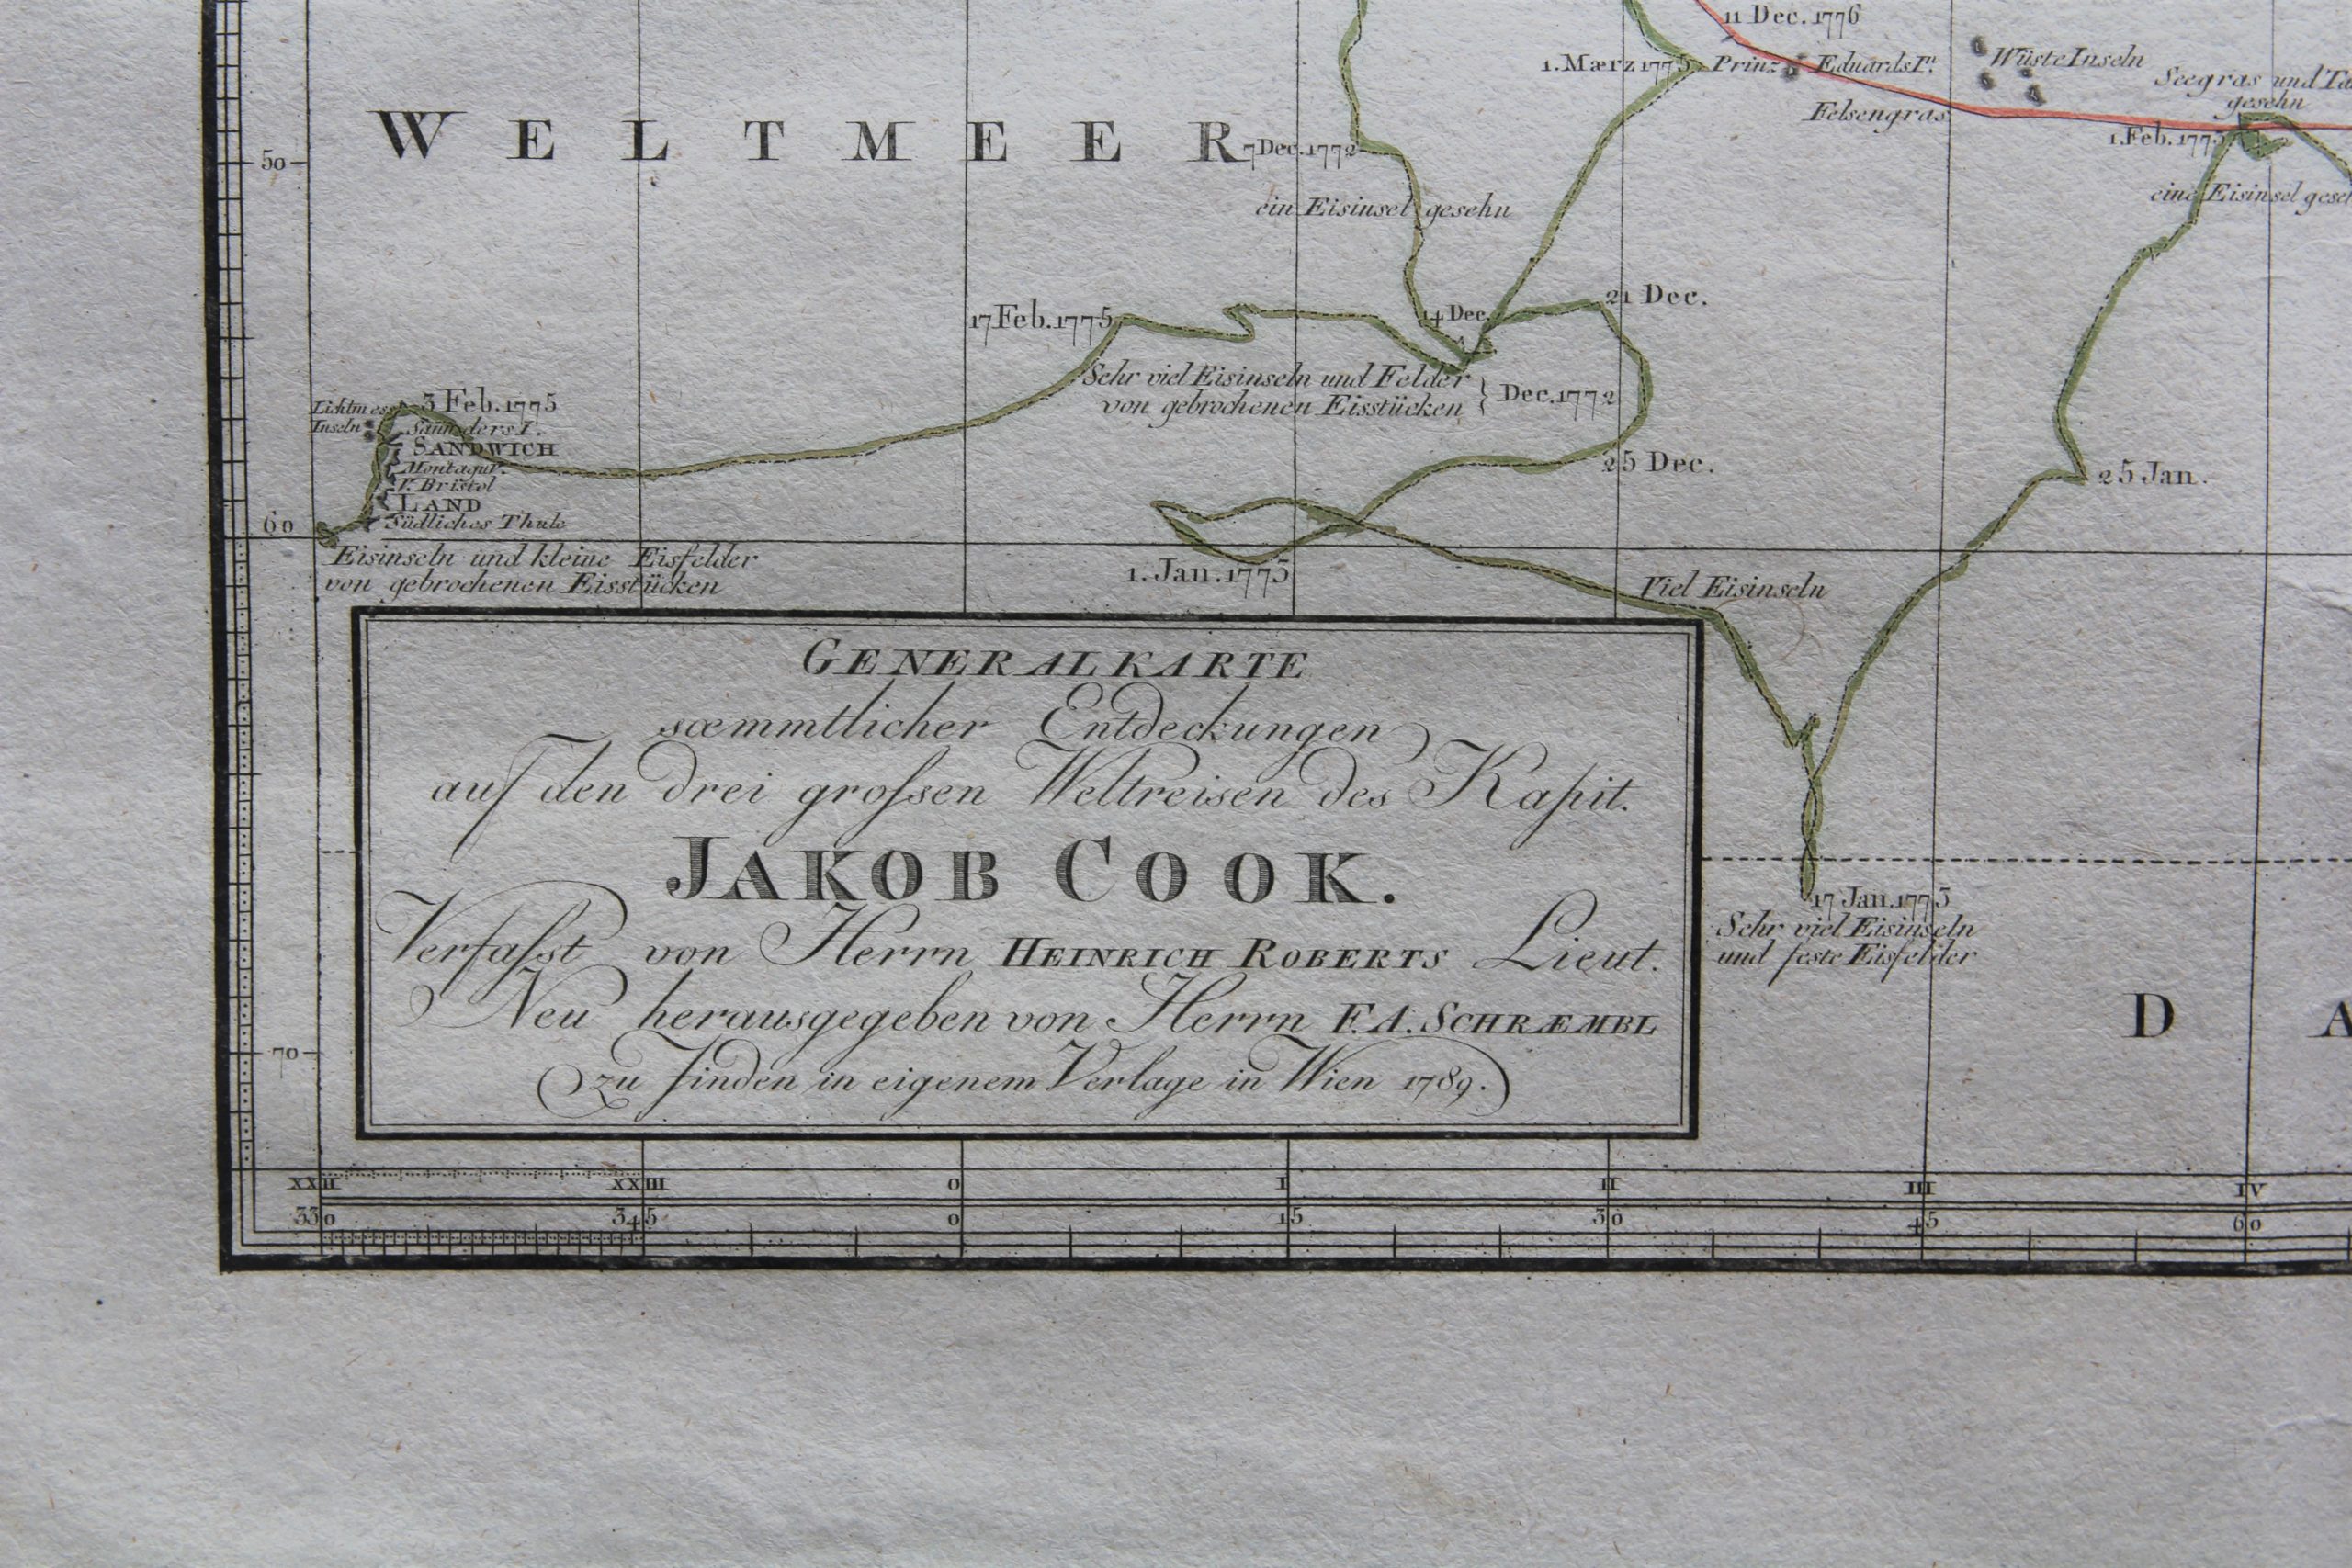 11 Dec. 1776
1. Mærz 1775
Prinz Eduards I.ⁿ
Wüste Inseln
Seegras und
gesehn
Felsengras
50
WELTMEER
7 Dec. 1772
1. Feb. 1773
ein Eisinsel gesehn
eine Eisinsel
17 Feb. 1775
14 Dec.
21 Dec.
Sehr viel Eisinseln und Felder
von gebrochenen Eisstücken
Dec. 1772
Lichtmess
Inseln
3 Feb. 1775
Saunders I.
SANDWICH
Montagu
V. Bristol
LAND
Südliches Thule
25 Dec.
25 Jan.
60
Eisinseln und kleine Eisfelder
von gebrochenen Eisstücken
1. Jan. 1773
Viel Eisinseln
GENERALKARTE
sœmmtlicher Entdeckungen
auf den drei grofsen Weltreisen des Kapit.
JAKOB COOK.
Verfafst von Herrn HEINRICH ROBERTS Lieut.
Neu herausgegeben von Herrn F. A. SCHRÆMBL
zu finden in eigenem Verlage in Wien 1789.
17 Jan. 1773
Sehr viel Eisinseln
und feste Eisfelder
D A
70
XXII XXIII 0 I II III IV
330 345 0 15 30 45 60